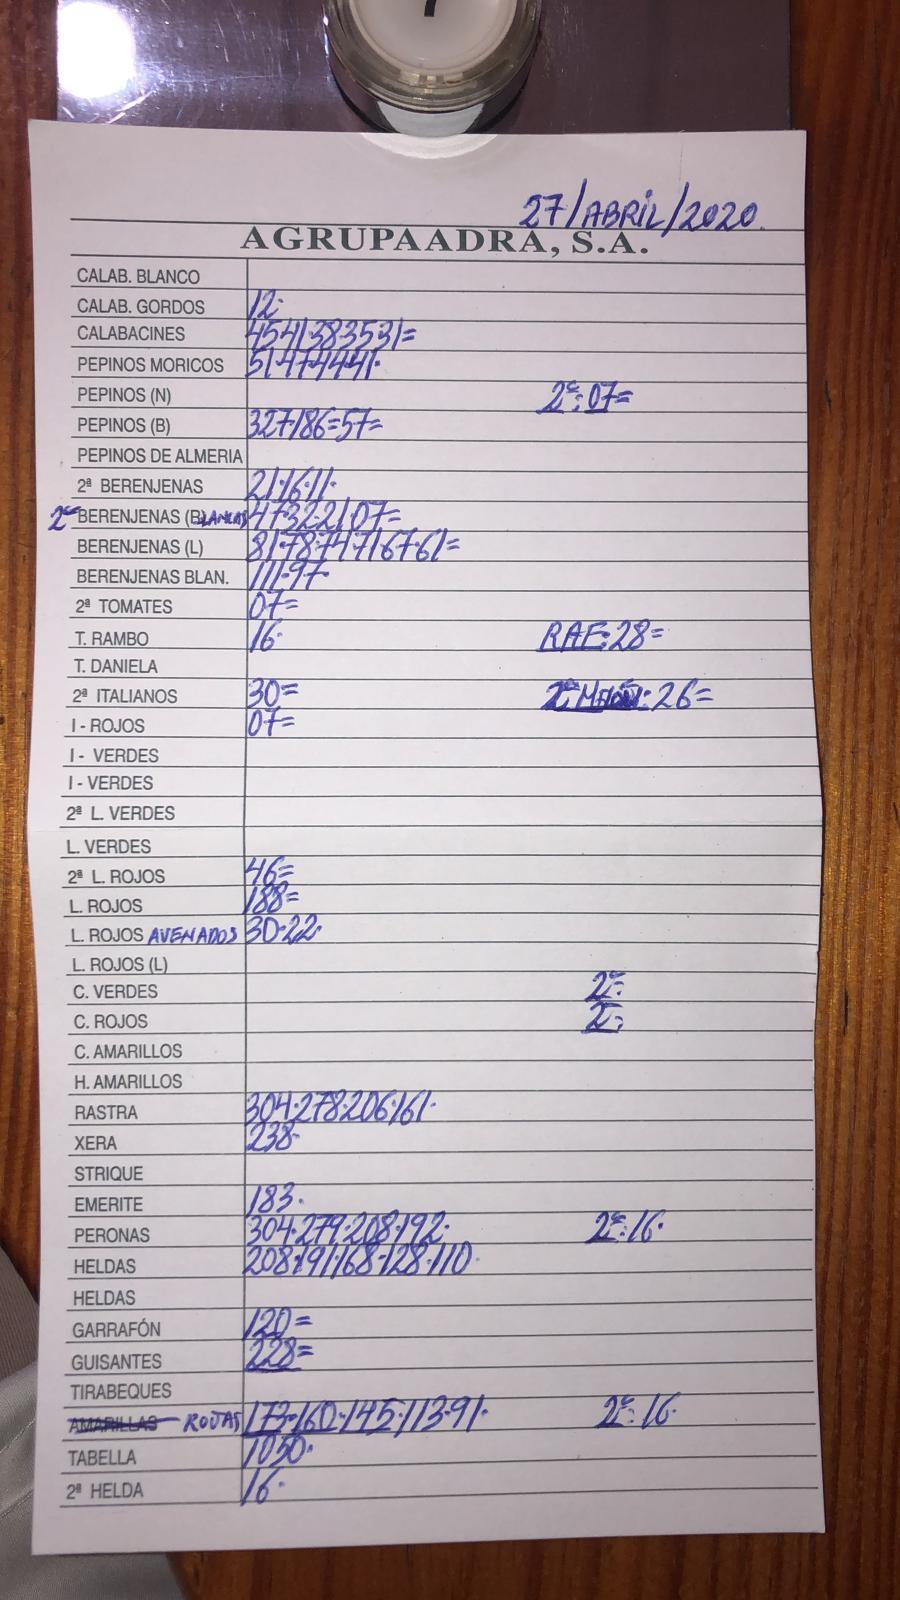 7
27/ABRIL/2020.
AGRUPAADRA, S.A.
CALAB. BLANCO
CALAB. GORDOS 12·
CALABACINES 45·41·38·35·31=
PEPINOS MORICOS 51·47·44·41·
PEPINOS (N) 2ª: 07=
PEPINOS (B) 327·186=57=
PEPINOS DE ALMERIA
2ª BERENJENAS 21·16·11·
2ª BERENJENAS (BLANCAS) 47·32·21·07=
BERENJENAS (L) 81·78·74·71·67·61=
BERENJENAS BLAN. 111·97·
2ª TOMATES 07=
T. RAMBO 16· RAF: 28=
T. DANIELA
2ª ITALIANOS 30= 2ª : 26=
I - ROJOS 07=
I - VERDES
I - VERDES
2ª L. VERDES
L. VERDES
2ª L. ROJOS 46=
L. ROJOS 188=
L. ROJOS AVENADOS 30·22·
L. ROJOS (L)
C. VERDES 2ª:
C. ROJOS 2ª:
C. AMARILLOS
H. AMARILLOS
RASTRA 304·278·206·161·
XERA 238·
STRIQUE
EMERITE 183·
PERONAS 304·279·208·192· 2ª: 16·
HELDAS 208·191·168·128·110·
HELDAS
GARRAFÓN 120=
GUISANTES 228=
TIRABEQUES
AMARILLAS ROJAS 173·160·145·113·91· 2ª: 16·
TABELLA 1050·
2ª HELDA 16·